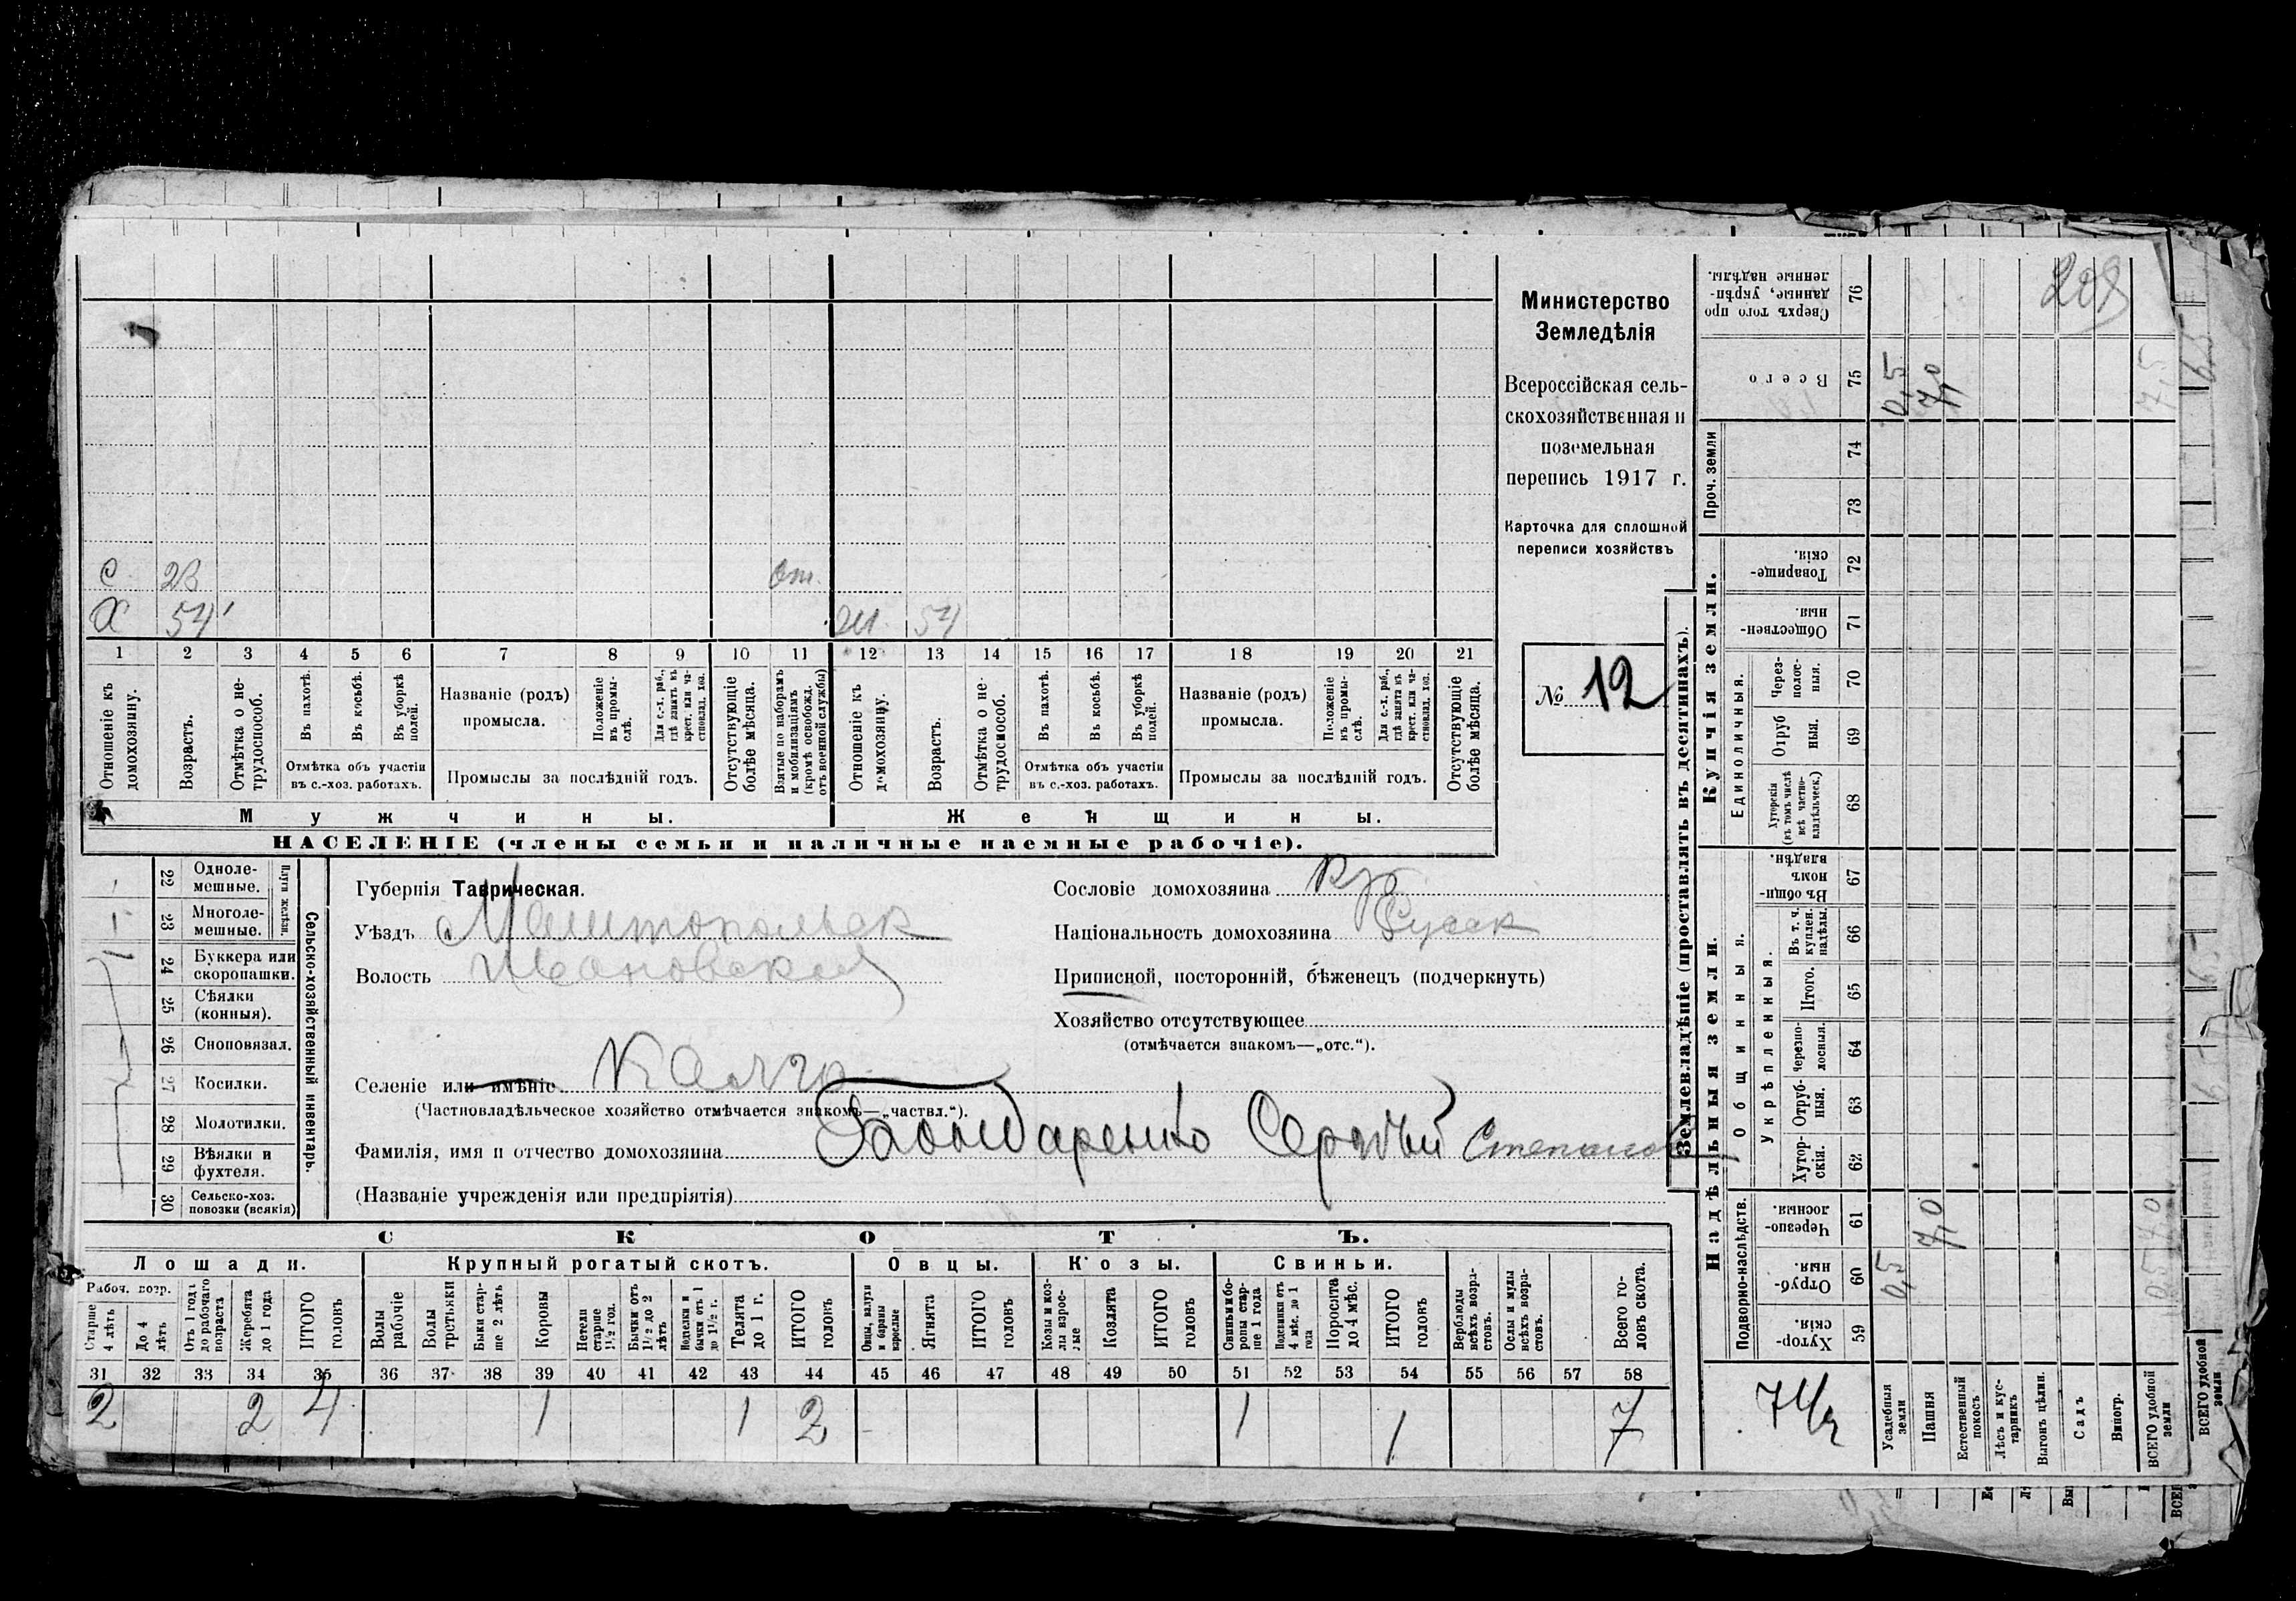 С 23 от.
Х 54 ж. 54
1 2 3 4 5 6 7 8 9 10 11 12 13 14 15 16 17 18 19 20 21
Отношеніе къ домохозяину.
Возрастъ.
Отмѣтка о нетрудоспособ.
Въ пахотѣ.
Въ косьбѣ.
Въ уборкѣ полей.
Отмѣтка объ участіи въ с.-хоз. работахъ.
Названіе (родъ) промысла.
Положеніе въ промыслѣ.
Для с.-х. раб., гдѣ занятъ въ крест. или частновлад. хоз.
Промыслы за послѣдній годъ.
Отсутствующіе болѣе мѣсяца.
Взятые по наборамъ и мобилизаціямъ (кромѣ освобожд. отъ военной службы)
Отношеніе къ домохозяину.
Возрастъ.
Отмѣтка о нетрудоспособ.
Въ пахотѣ.
Въ косьбѣ.
Въ уборкѣ полей.
Отмѣтка объ участіи въ с.-хоз. работахъ.
Названіе (родъ) промысла.
Положеніе въ промыслѣ.
Для с.-х. раб., гдѣ занята въ крест. или частновлад. хоз.
Промыслы за послѣдній годъ.
Отсутствующіе болѣе мѣсяца.
Мужчины.
Женщины.
НАСЕЛЕНІЕ (члены семьи и наличные наемные рабочіе).
Министерство
Земледѣлія
Всероссійская сель-
скохозяйственная и
поземельная
перепись 1917 г.
Карточка для сплошной
переписи хозяйствъ
№ 12
22 Однолемешные.
23 Многолемешные.
Плуги желѣзн.
24 Буккера или скоропашки.
25 Сѣялки (конныя).
26 Сноповязал.
27 Косилки.
28 Молотилки.
29 Вѣялки и фухтеля.
30 Сельско-хоз. повозки (всякія)
Сельско-хозяйственный инвентарь.
Губернія Таврическая.
Уѣздъ Мелитопольск
Волость Ивановская
Селеніе или имѣніе
(Частновладѣльческое хозяйство отмѣчается знакомъ—„частвл.“).
Фамилія, имя и отчество домохозяина Бондаренко Сергѣй Степанов
(Названіе учрежденія или предпріятія)
Сословіе домохозяина Кр
Національность домохозяина Русск
Приписной, посторонній, бѣженецъ (подчеркнуть)
Хозяйство отсутствующее
(отмѣчается знакомъ—„отс.“).
СКОТЪ.
Лошади. Крупный рогатый скотъ. Овцы. Козы. Свиньи.
Рабоч. возр.
Старше 4 лѣтъ
До 4 лѣтъ
Отъ 1 года до рабочаго возраста
Жеребята до 1 года
ИТОГО головъ
Волы рабочіе
Волы третьяки
Быки старше 2 лѣтъ
Коровы
Нетели старше 1½ год.
Бычки отъ 1½ до 2 лѣтъ
Телки и бычки отъ 1 до 1½ г.
Телята до 1 г.
ИТОГО головъ
Овцы, валухи и бараны взрослые
Ягнята
ИТОГО головъ
Козы и козлы взрослые
Козлята
ИТОГО головъ
Свиньи и боровы старше 1 года
Подсвинки отъ 4 мѣс. до 1 года
Поросята до 4 мѣс.
ИТОГО головъ
Верблюды всѣхъ возрастовъ.
Ослы и мулы всѣхъ возрастовъ.
Всего головъ скота.
31 32 33 34 35 36 37 38 39 40 41 42 43 44 45 46 47 48 49 50 51 52 53 54 55 56 57 58
2 2 4 1 1 2 1 1 7
Землевладѣніе (проставлять въ десятинахъ).
Надѣльныя земли. Купчія земли.
Проч. земли
Подворно-наслѣдств.
Общинныя.
Укрѣпленныя.
Единоличныя.
Хуторскія. 59
Отрубныя. 60
Черезполосныя. 61
Хуторскія. 62
Отрубныя. 63
Черезполосныя. 64
Итого. 65
Въ т. ч. куплен. надѣлы. 66
Въ общинномъ владѣн. 67
Хуторскія (въ томъ числѣ всѣ частновладѣльческ.) 68
Отрубныя. 69
Черезполосныя. 70
Общественныя. 71
Товарищескія. 72
73
74
Всего 75
Сверхъ того проданные, укрѣпленные надѣлы. 76
Усадебныя земли 0,5 0,5
Пашня 7,0 7,0
Естественный покосъ
Лѣсъ и кустарникъ
Выгонъ цѣлин.
Садъ
Виногр.
ВСЕГО удобной земли 7,5
ВСЕГО удобной земли